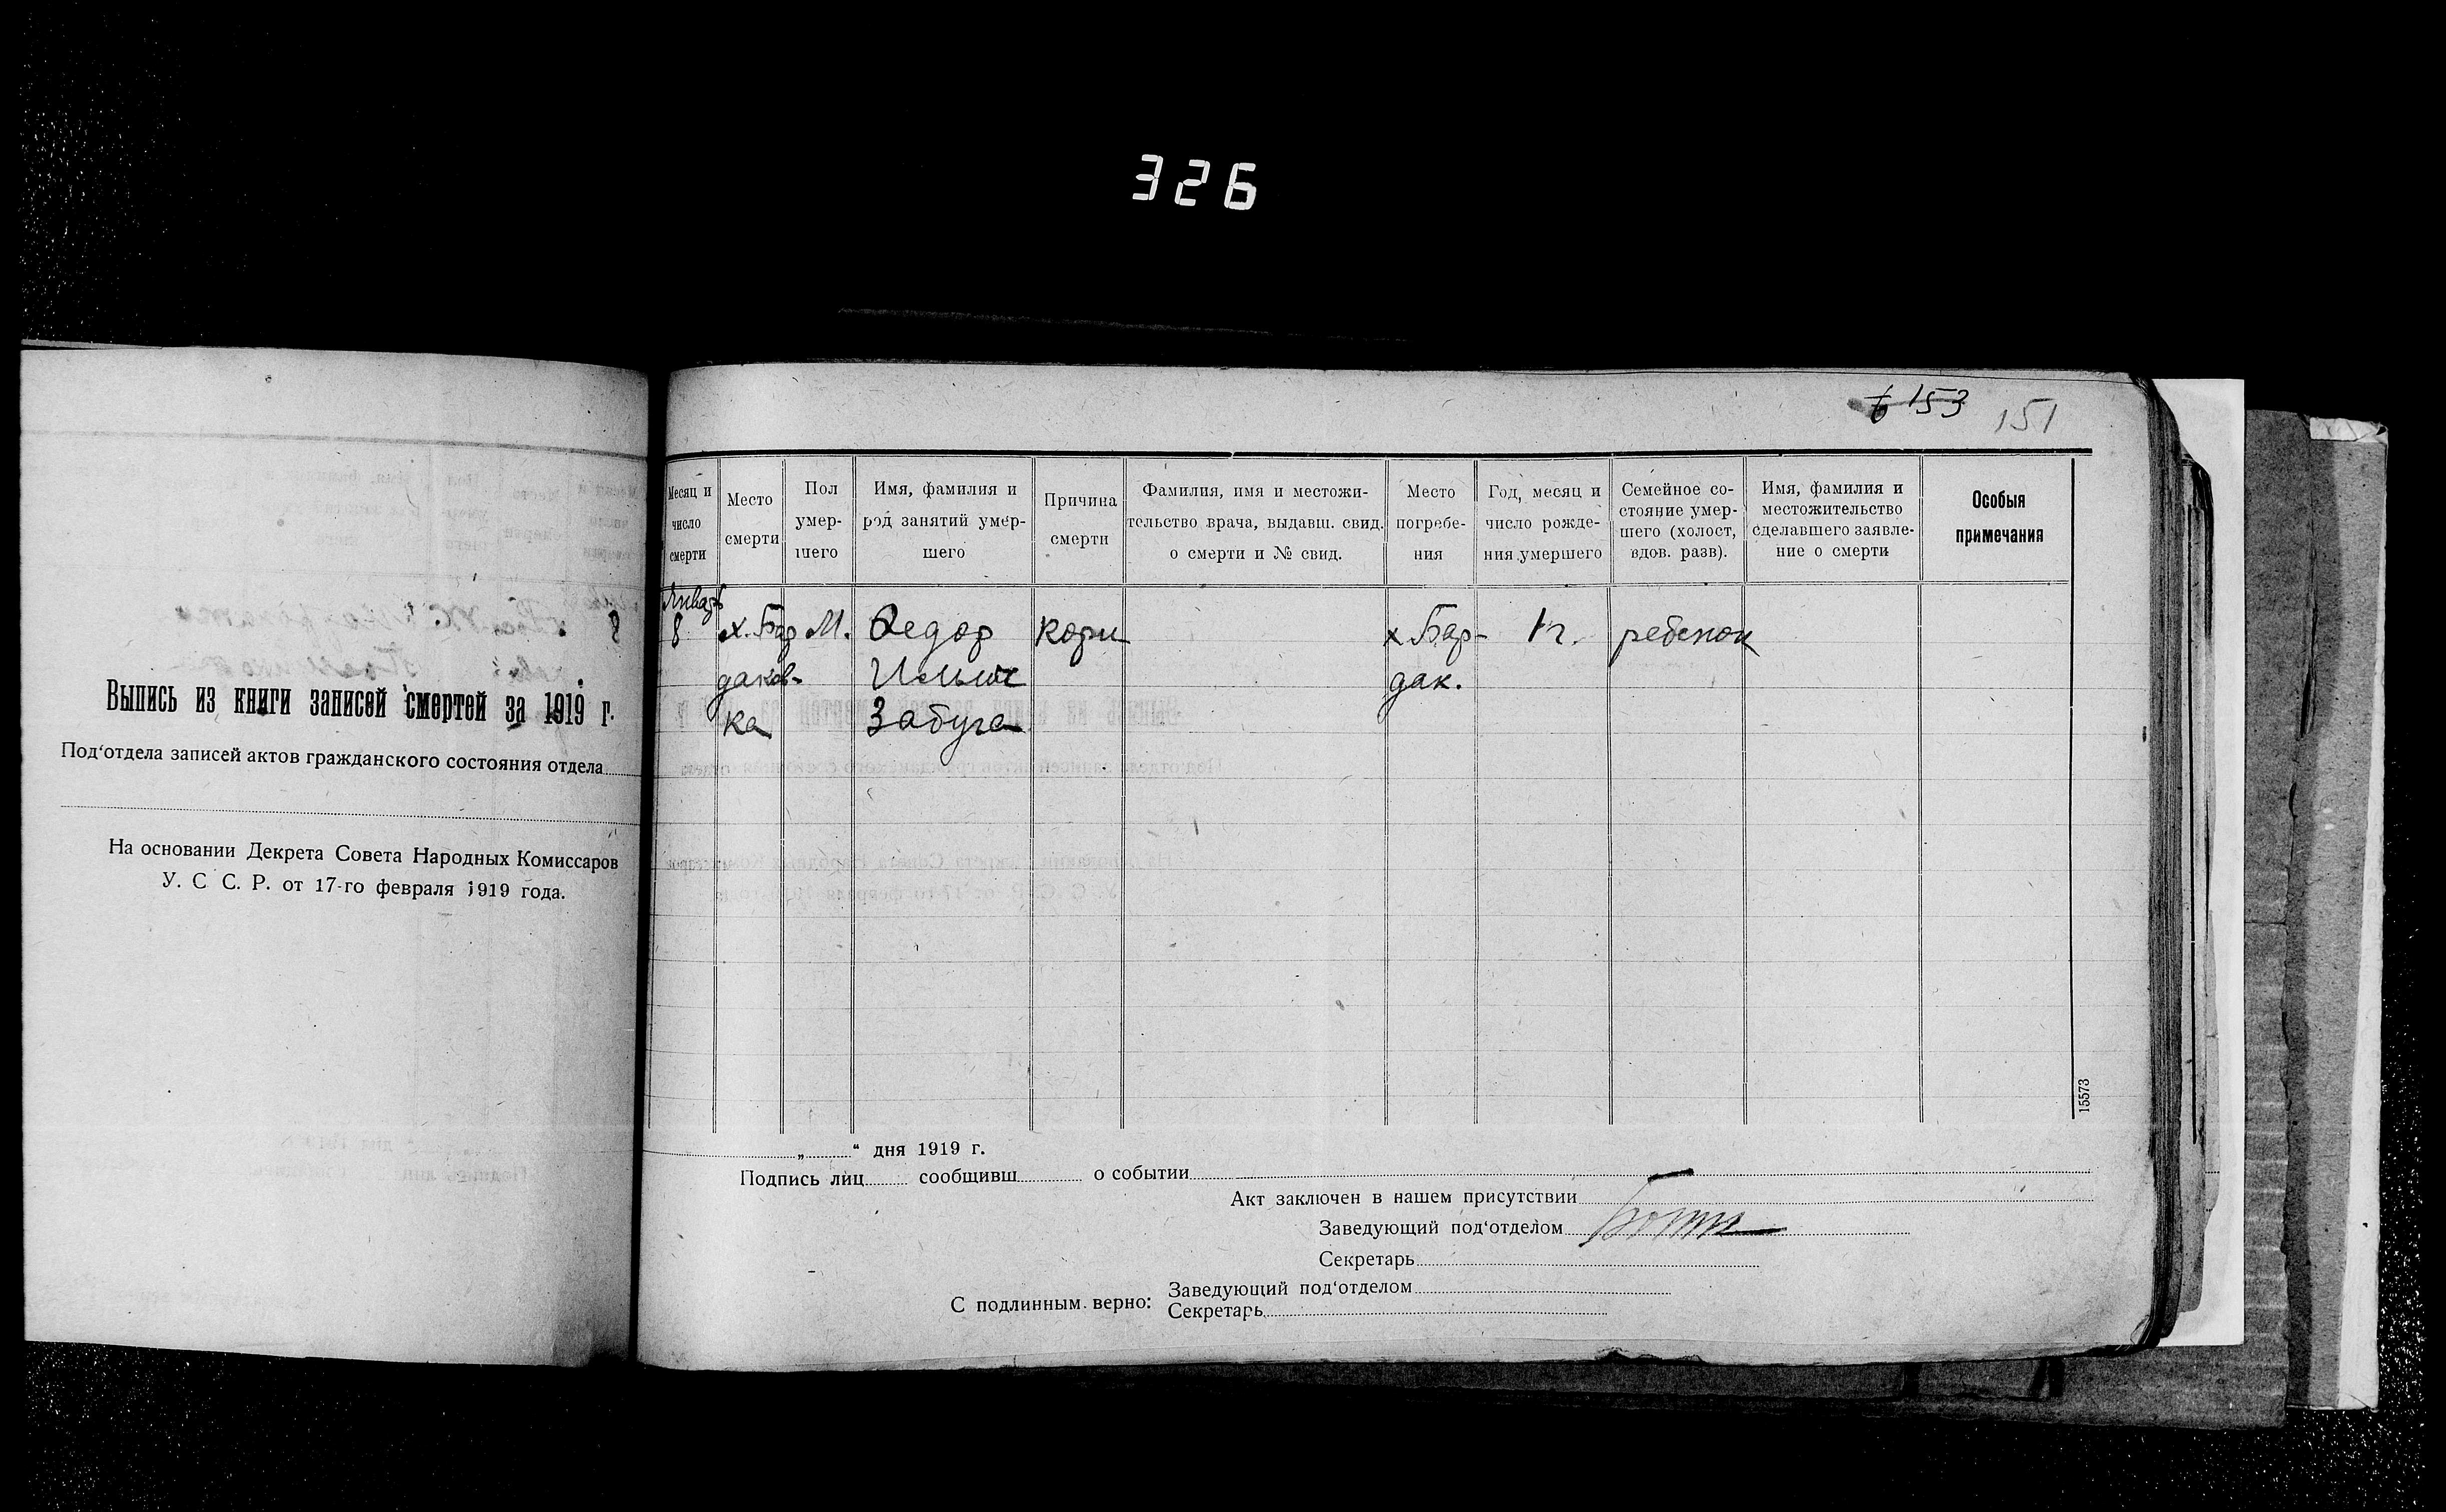 326
153 151
Выпись из книги записей смертей за 1919 г.
Под'отдела записей актов гражданского состояния отдела
На основании Декрета Совета Народных Комиссаров
У. С С. Р. от 17-го февраля 1919 года.
Месяц и число смерти
Место смерти
Пол умер- шего
Имя, фамилия и род занятий умер- шего
Причина смерти
Фамилия, имя и местожи- тельство врача, выдавш. свид. о смерти и № свид.
Место погребе- ния
Год, месяц и число рожде- ния умершего
Семейное со- стояние умер- шего (холост, вдов. разв).
Имя, фамилия и местожительство сделавшего заявле- ние о смерти
Особыя примечания
Январь
8 х. Бар М. Федор кори х Бар- 1 г. ребенок
даков- Ильич дак.
ка Забуга
15573
„ “ дня 1919 г.
Подпись лиц сообщивш о событии
Акт заключен в нашем присутствии
Заведующий под'отделом
Секретарь
С подлинным верно: Заведующий под'отделом
Секретарь